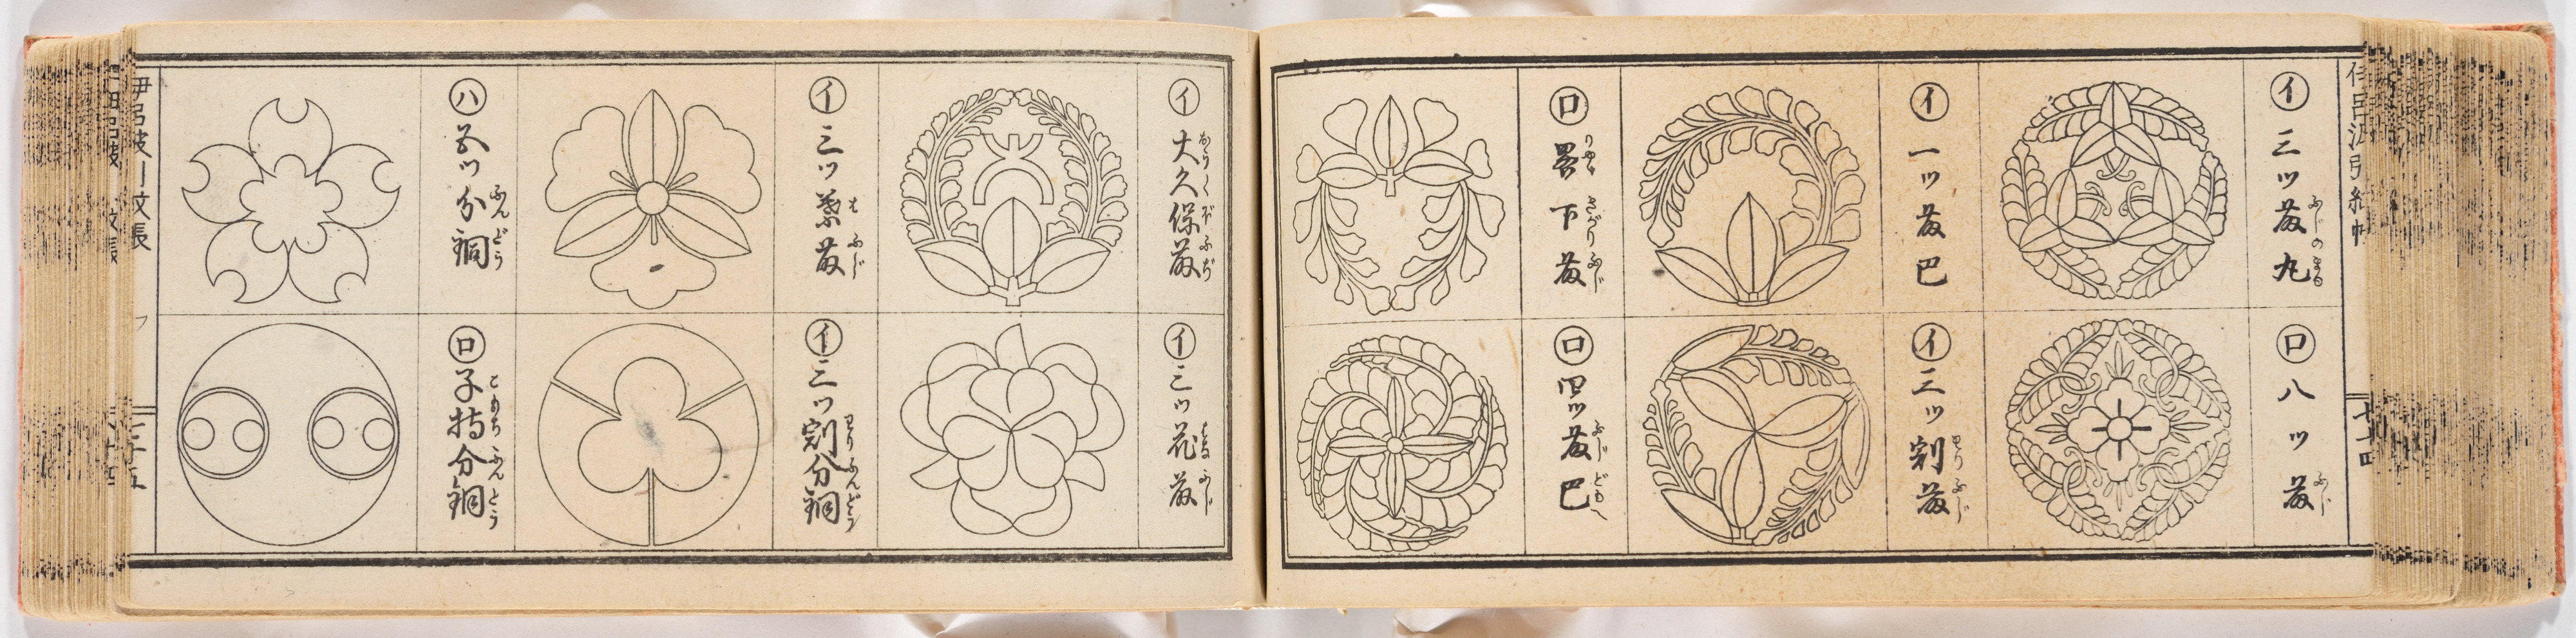 伊呂波引紋帖
七十四
イ 三ツ藤丸
ふじのまる
ロ 八ツ藤
ふじ
イ 一ツ藤巴
イ 三ツ割藤
わりふじ
ロ 畧下藤
りやくさがりふじ
ロ 四ツ藤巴
ふじどもへ
イ 大久保藤
おうくぼふぢ
イ 三ツ花藤
はなふじ
イ 三ツ葉藤
はふじ
イ 三ツ割分銅
わりふんどう
ハ 五ツ分銅
ふんどう
ロ 子持分銅
こもちふんとう
伊呂波引紋帳
七十五